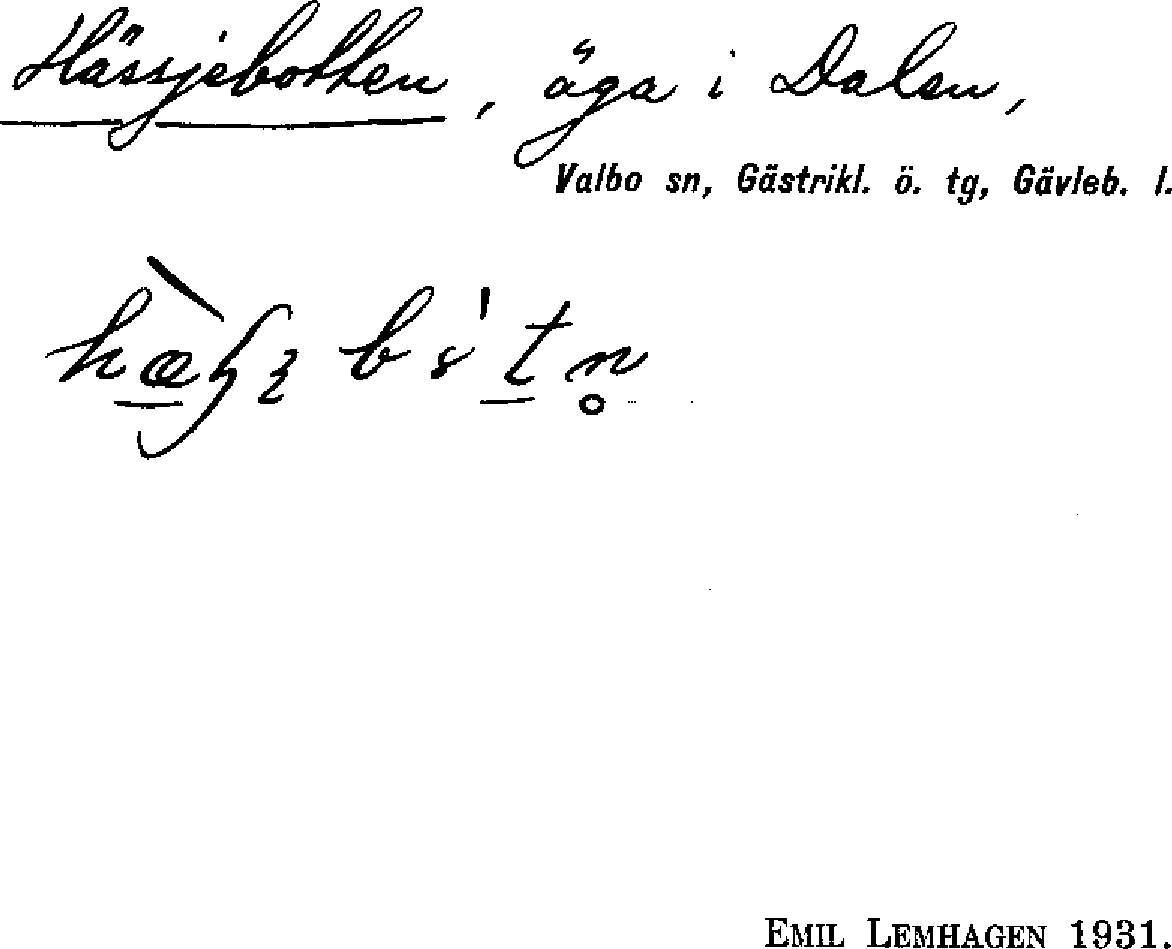 Hässjebotten, äga i Dalen,
Valbo sn, Gästrikl. ö. tg, Gävleb. l.
EMIL LEMHAGEN 1931.